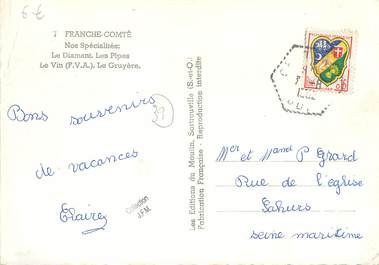 6 €
1 FRANCHE-COMTÉ
Nos Spécialités:
Le Diamant. Les Pipes
Le Vin (F.V.A.). Le Gruyère.
Bons souvenirs
de vacances
Claire
39
Collection
J.F.M.
Les Editions du Moulin, Sartrouville (S.-et-O.)
Fabrication Française - Reproduction interdite
Mer et Mand P Grard
Rue de l'église
Sahurs
seine maritime